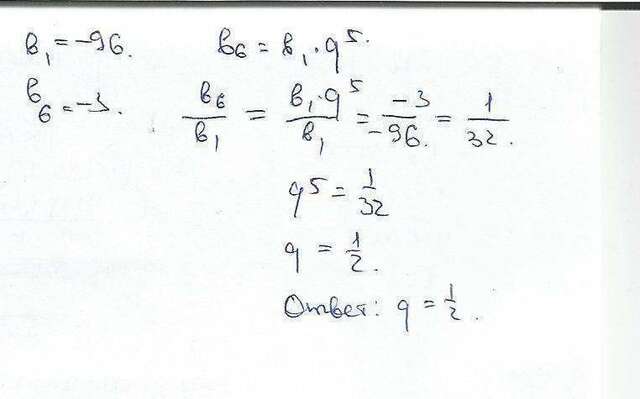 в₁ = -96.
в₆ = в₁ · q⁵.
в₆ = -3.
в₆/в₁ = в₁·q⁵/в₁ = -3/-96. = 1/32.
q⁵ = 1/32
q = 1/2.
Ответ: q = 1/2.